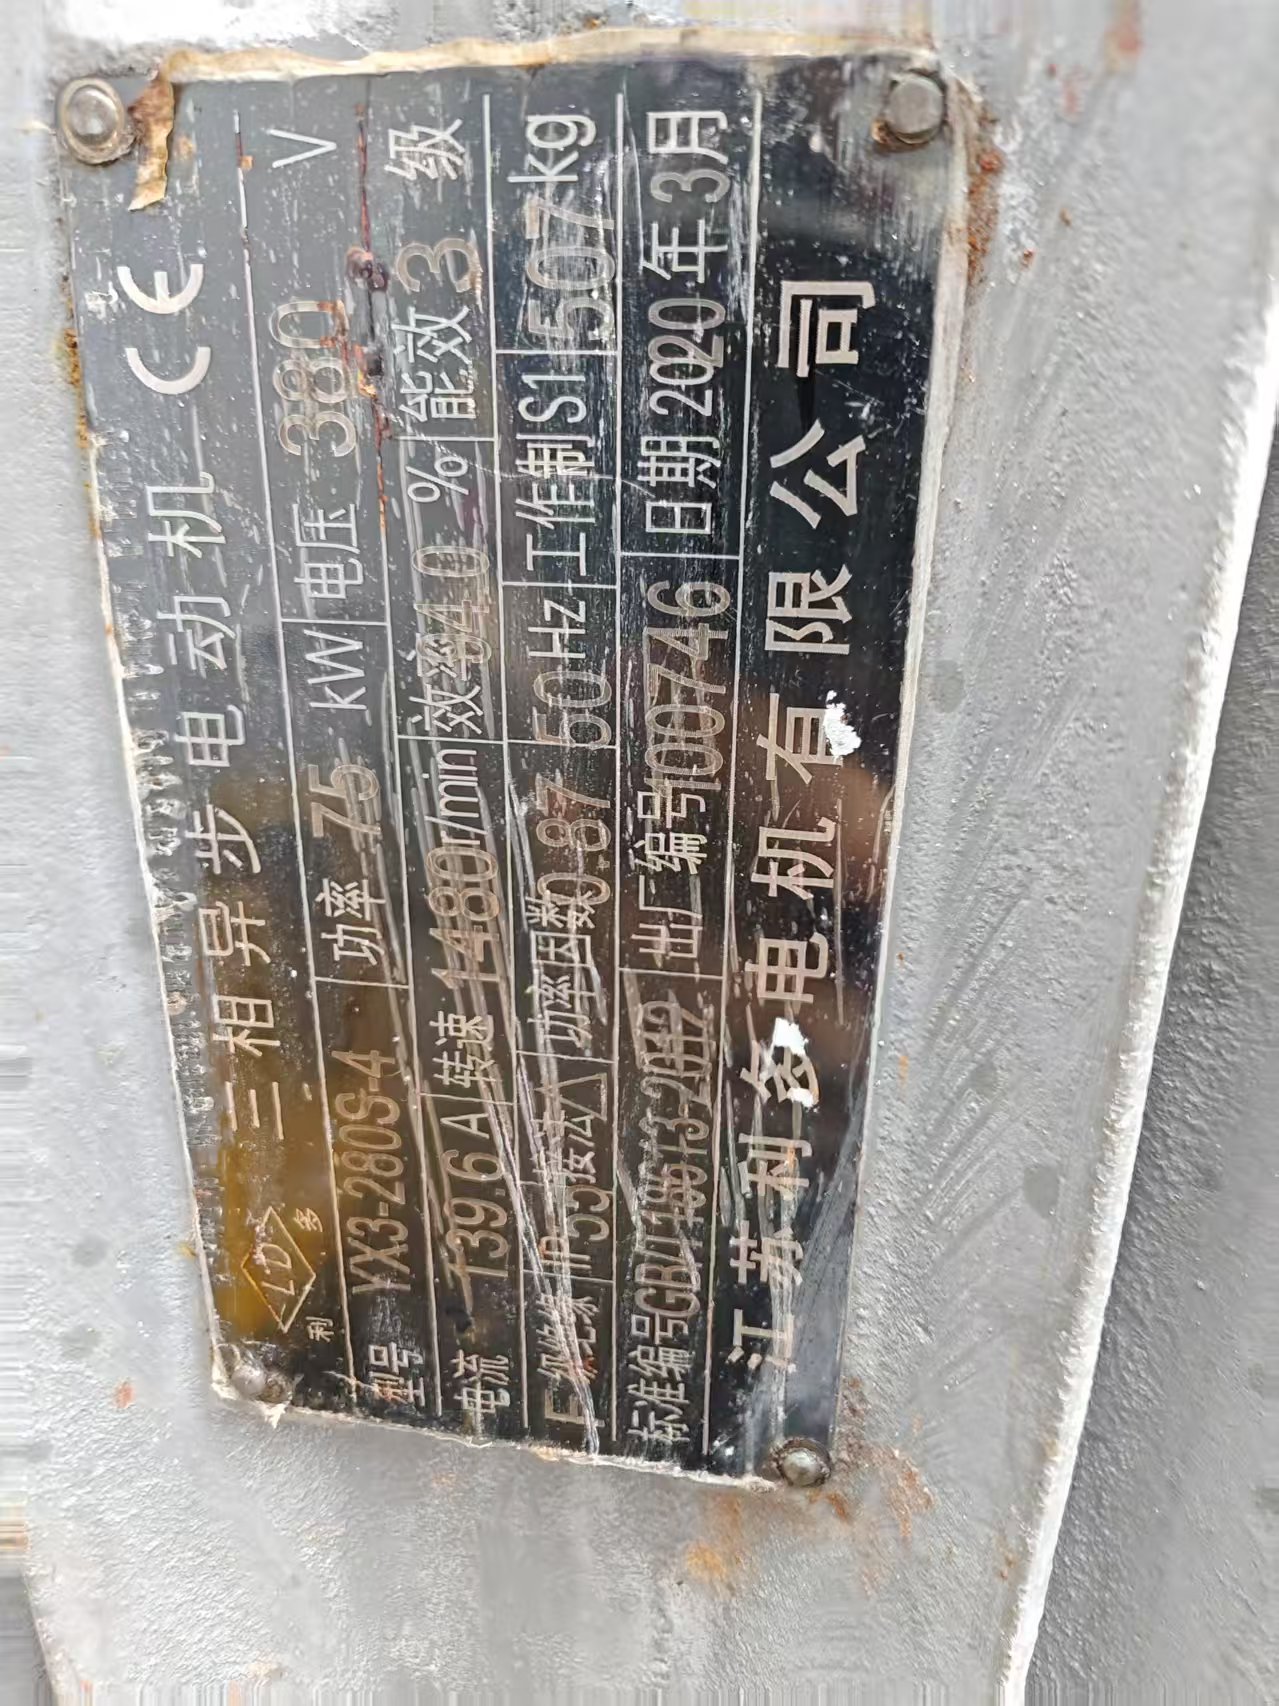 利 LD 多 三相异步电动机 CE
型号 YX3-280S-4 功率 75 kW 电压 380 V
电流 139.6 A 转速 1480 r/min 效率 94.0 % 能效 3 级
F 级绝缘 IP 55 接法 △ 功率因数 0.87 50 Hz 工作制 S1 507 kg
标准编号 出厂编号 100746 日期 2020 年 3 月
江苏利多电机有限公司